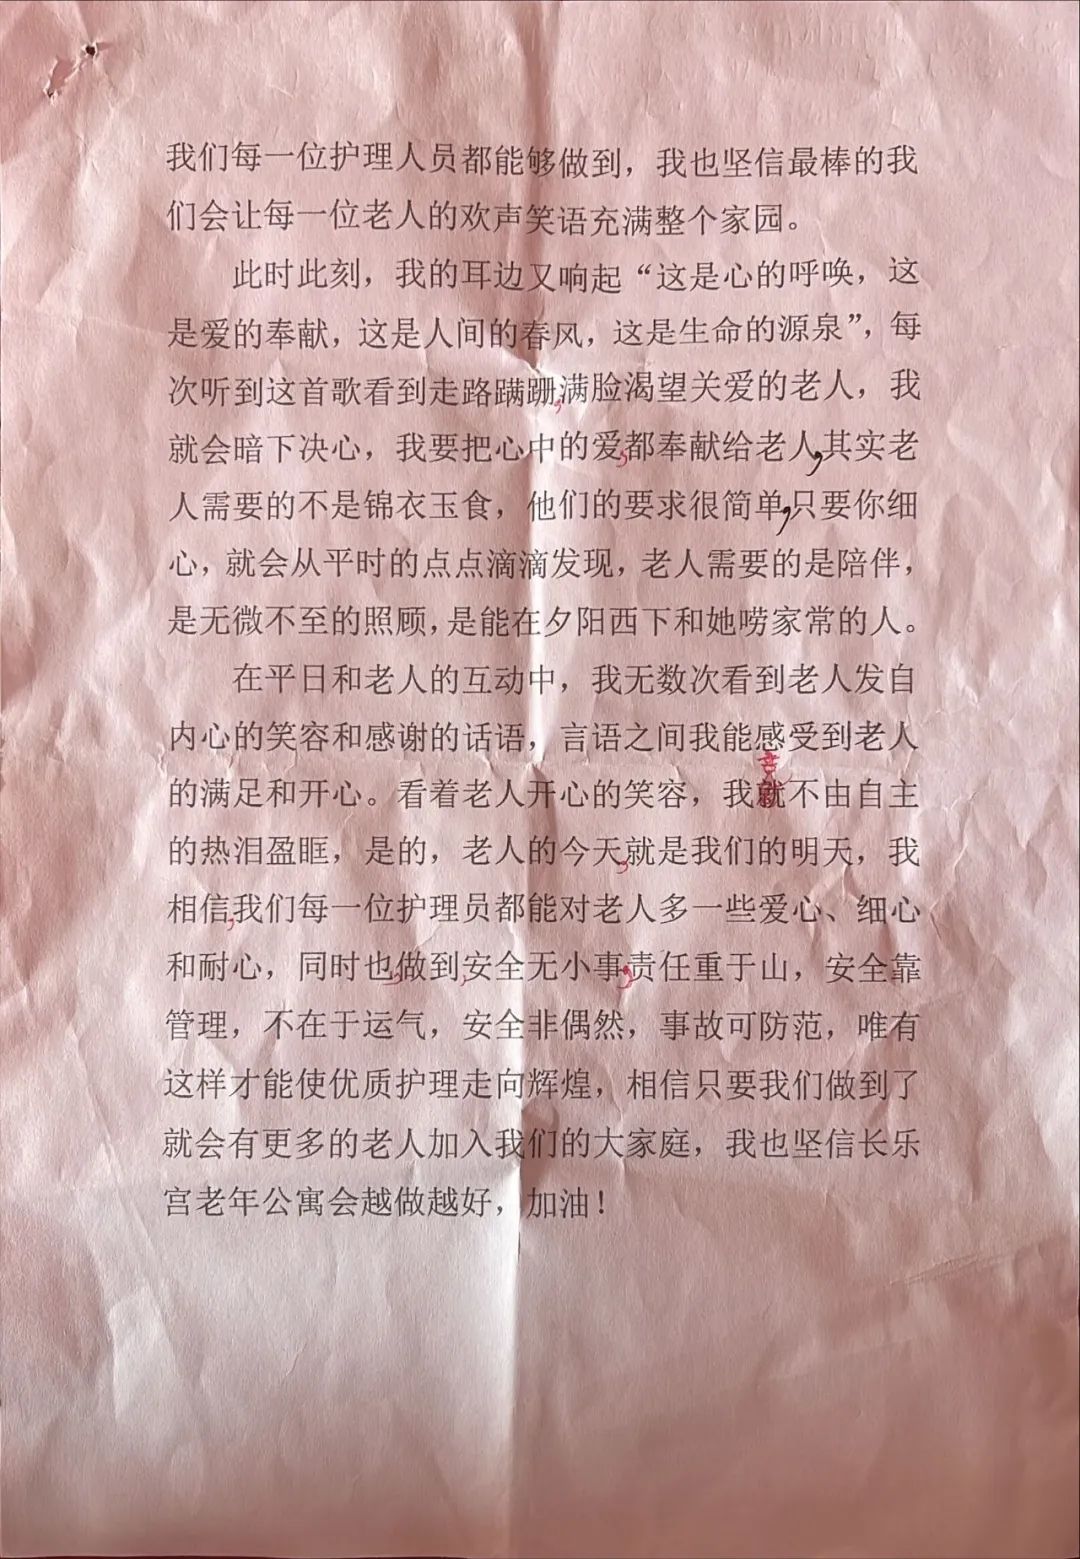 我们每一位护理人员都能够做到，我也坚信最棒的我
们会让每一位老人的欢声笑语充满整个家园。
此时此刻，我的耳边又响起“这是心的呼唤，这
是爱的奉献，这是人间的春风，这是生命的源泉”，每
次听到这首歌看到走路蹒跚,满脸渴望关爱的老人，我
就会暗下决心，我要把心中的爱,都奉献给老人,其实老
人需要的不是锦衣玉食，他们的要求很简单,只要你细
心，就会从平时的点点滴滴发现，老人需要的是陪伴，
是无微不至的照顾，是能在夕阳西下和她唠家常的人。
在平日和老人的互动中，我无数次看到老人发自
内心的笑容和感谢的话语，言语之间我能感受到老人
的满足和开心。看着老人开心的笑容，我就不由自主
的热泪盈眶，是的，老人的今天,就是我们的明天，我
相信,我们每一位护理员都能对老人多一些爱心、细心
和耐心，同时也,做到,安全无小事,责任重于山，安全靠
管理，不在于运气，安全非偶然，事故可防范，唯有
这样才能使优质护理走向辉煌，相信只要我们做到了
就会有更多的老人加入我们的大家庭，我也坚信长乐
宫老年公寓会越做越好，加油！